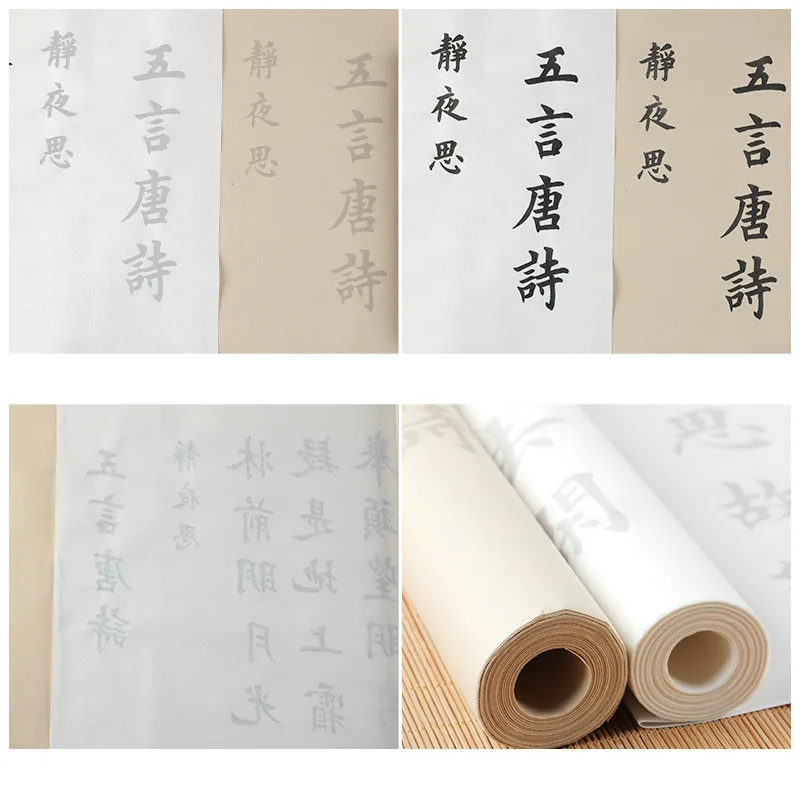 五言唐詩
靜夜思
五言唐詩
靜夜思
五言唐詩
靜夜思
五言唐詩
靜夜思
五言唐詩
靜夜思
牀前明月光
疑是地上霜
舉頭望明
思故